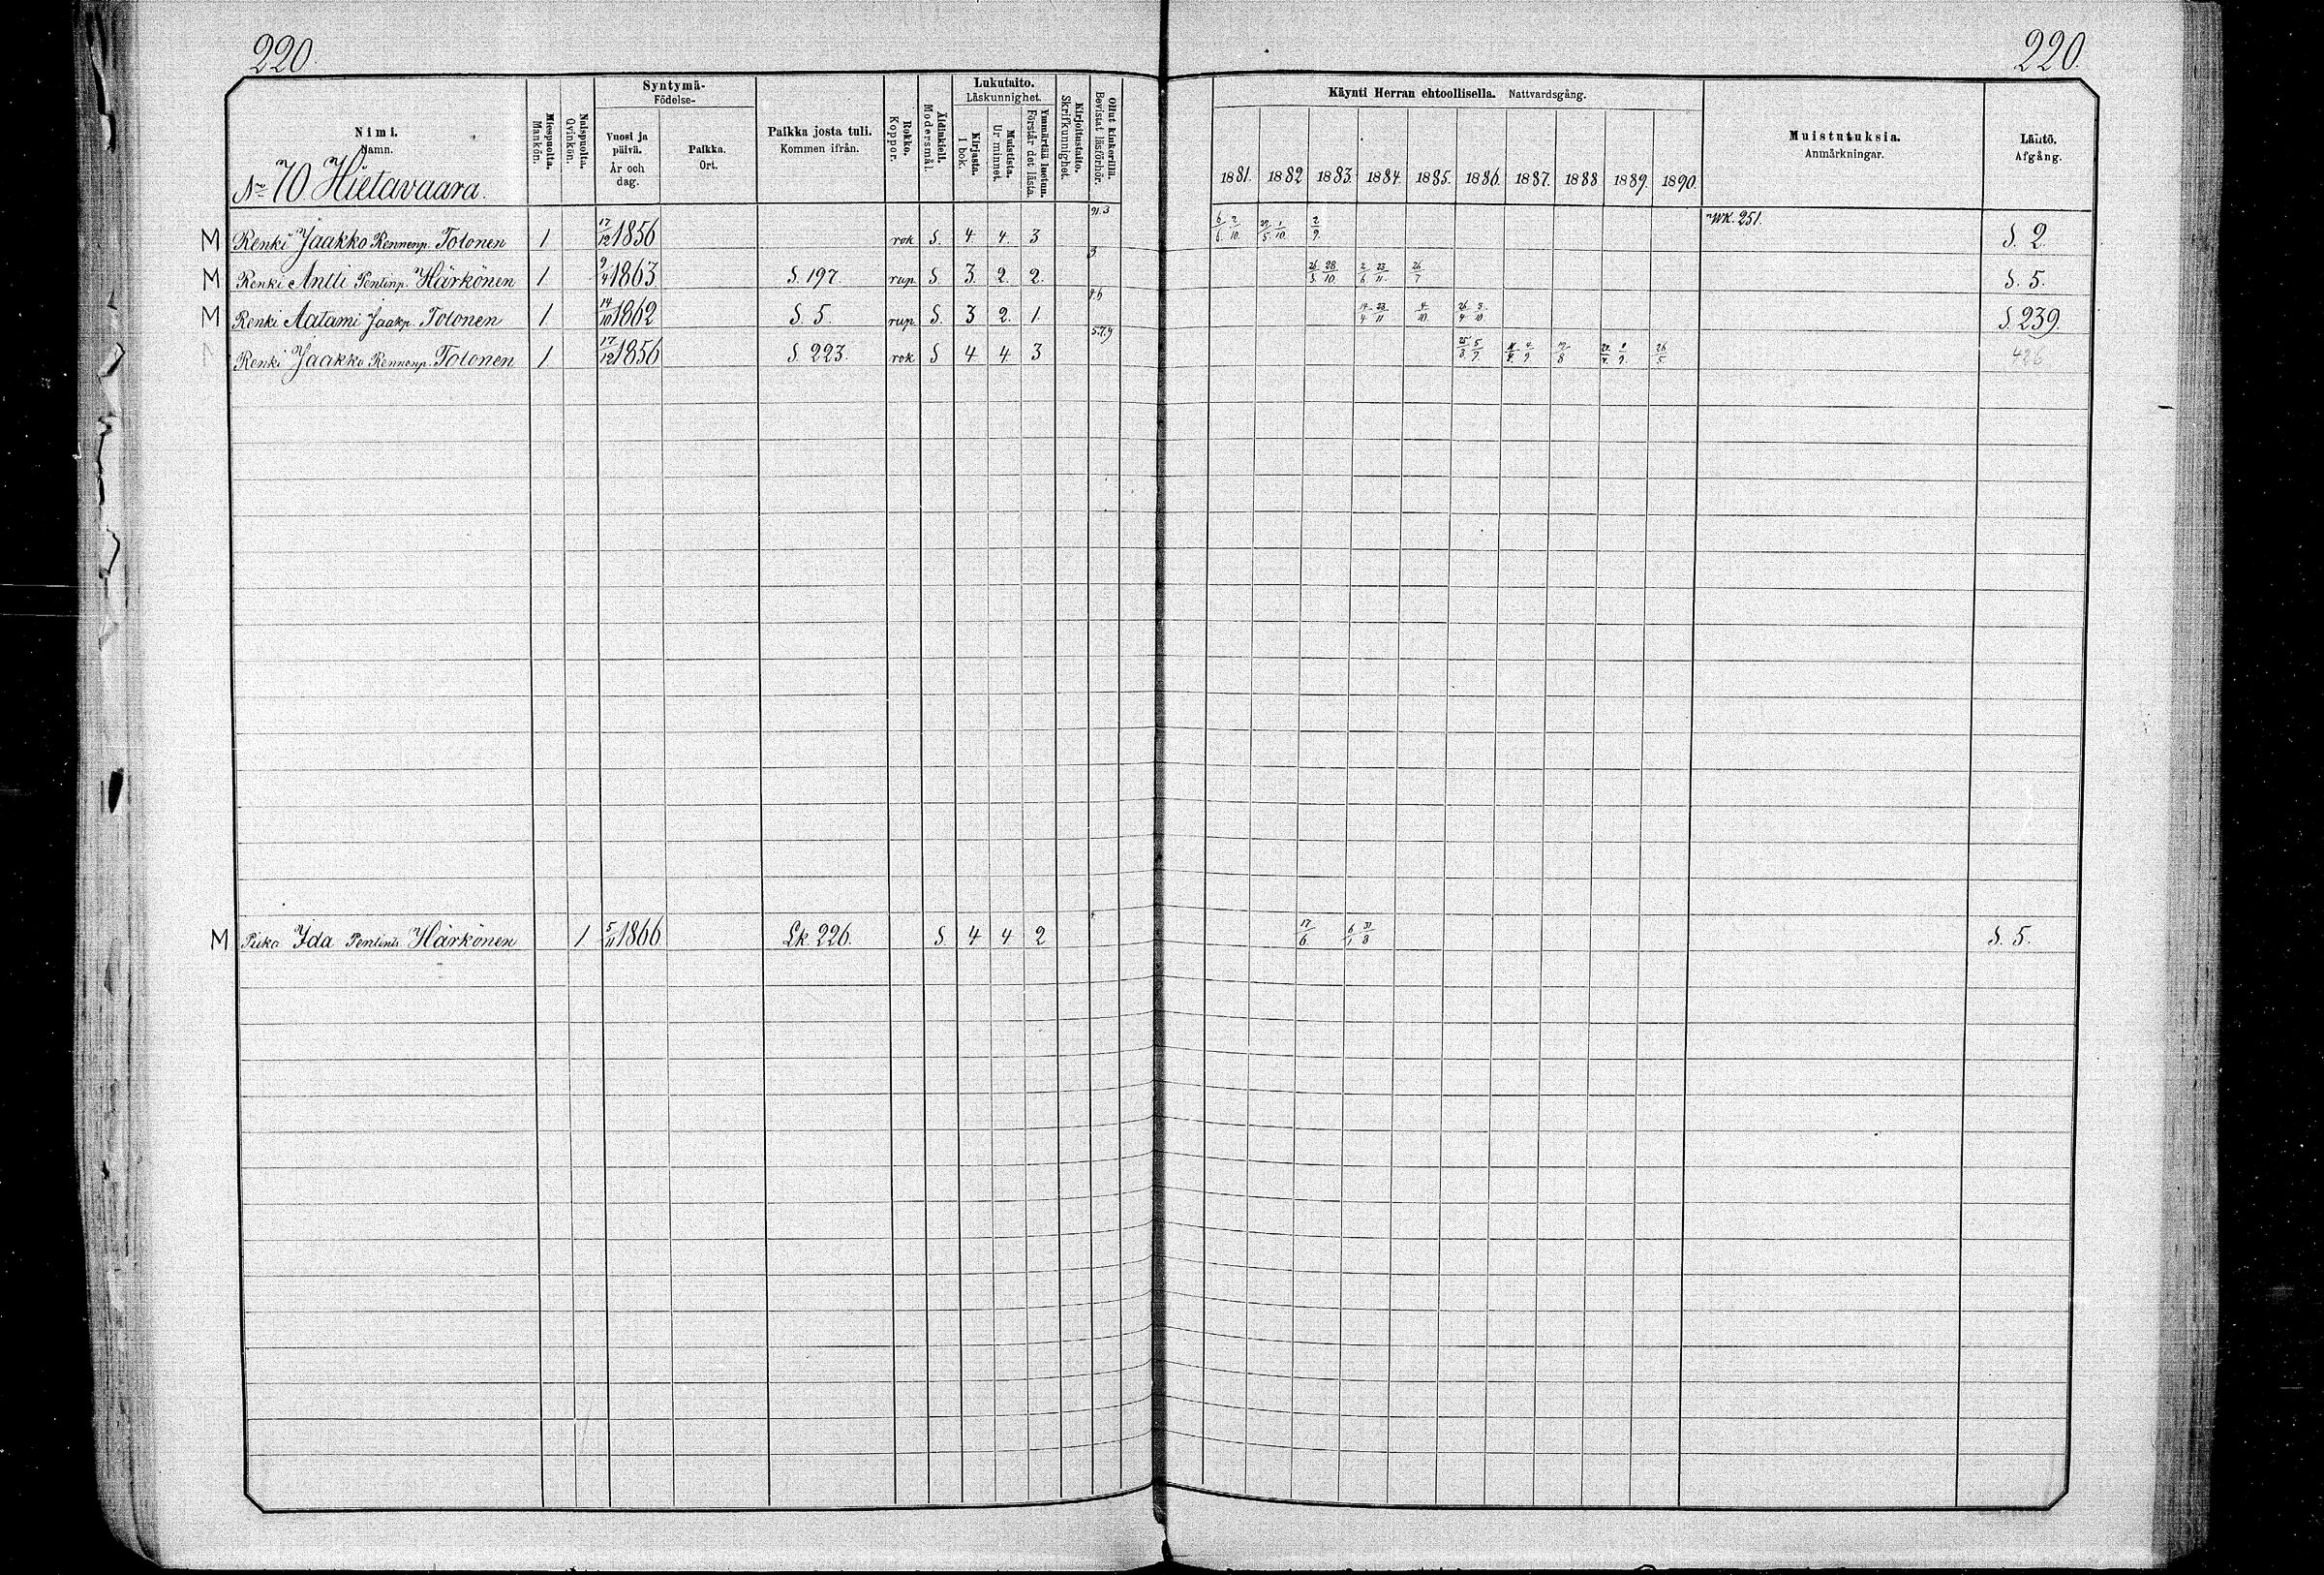 220.
220.
Nimi.
Namn.
No 70 Hietavaara.
Miespuolta.
Mankön.
Naispuolta.
Qvinkön.
Syntymä-
Födelse-
Vuosi ja päivä.
År och dag.
Paikka.
Ort.
Paikka josta tuli.
Kommen ifrån.
Rokko.
Koppor.
Äidinkieli.
Modersmål.
Lukutaito.
Läskunnighet.
Kirjasta.
I bok.
Muistista.
Ur minnet.
Ymmärtää luetun.
Förstår det lästa.
Kirjoitustaito.
Skrifkunnighet.
Ollut kinkerillä.
Bevistat läsförhör.
Käynti Herran ehtoollisella. Nattvardsgång.
1881. 1882 1883. 1884. 1885. 1886. 1887. 1888 1889. 1890.
Muistutuksia.
Anmärkningar.
Lähtö.
Afgång.
M Renki Jaakko Rennenp. Tolonen 1. 17/12 1856 rok S. 4. 4. 3 6/6 2/10 1/10 2/9. WK. 251. S. 2.
M Renki Antti Pentinp. Härkönen 1. 9/4 1863 S. 197. rup. S. 3. 2. 2. 3 26/5 28/10 2/6 23/11 26/7 S. 5.
M Renki Aatami Jaakp. Tolonen 1. 14/10 1862 S. 5. rup. S. 3 2. 1. 23/11 4/10 26/4 3/10 S. 239.
Renki Jaakko Rennenp. Tolonen 1. 17/12 1856 S. 223. rok S 4 4 3 5.7.9 25/8. 5/9. 26/5. 426
M Piika Ida Pentint. Härkönen 1 5/11 1866 Lk. 226. S. 4 4 2 17/6. 6/1 31/8 S. 5.